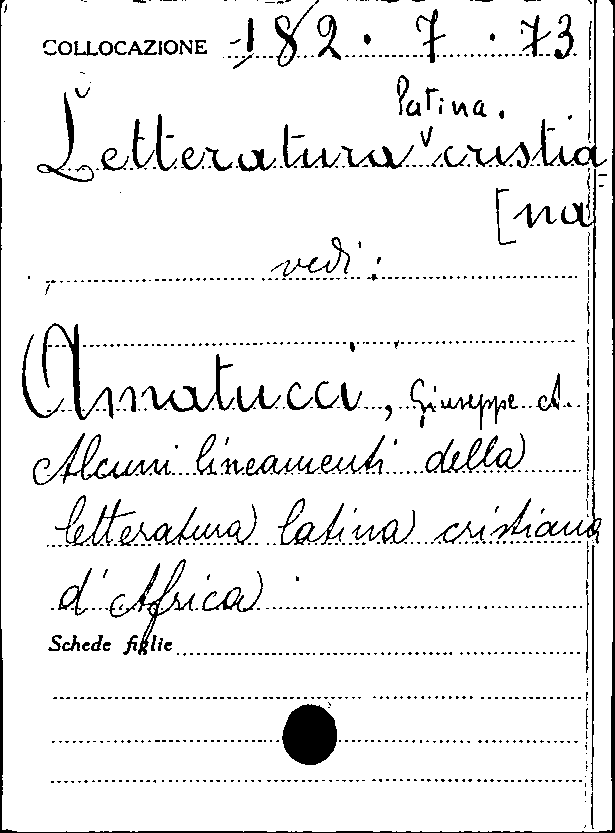 COLLOCAZIONE 182 . 7 . 73
latina.
Letteratura cristia
[na
vedi:
Amatucci, Giuseppe A.
Alcuni lineamenti della
letteratura latina cristiana
d'Africa
Schede figlie